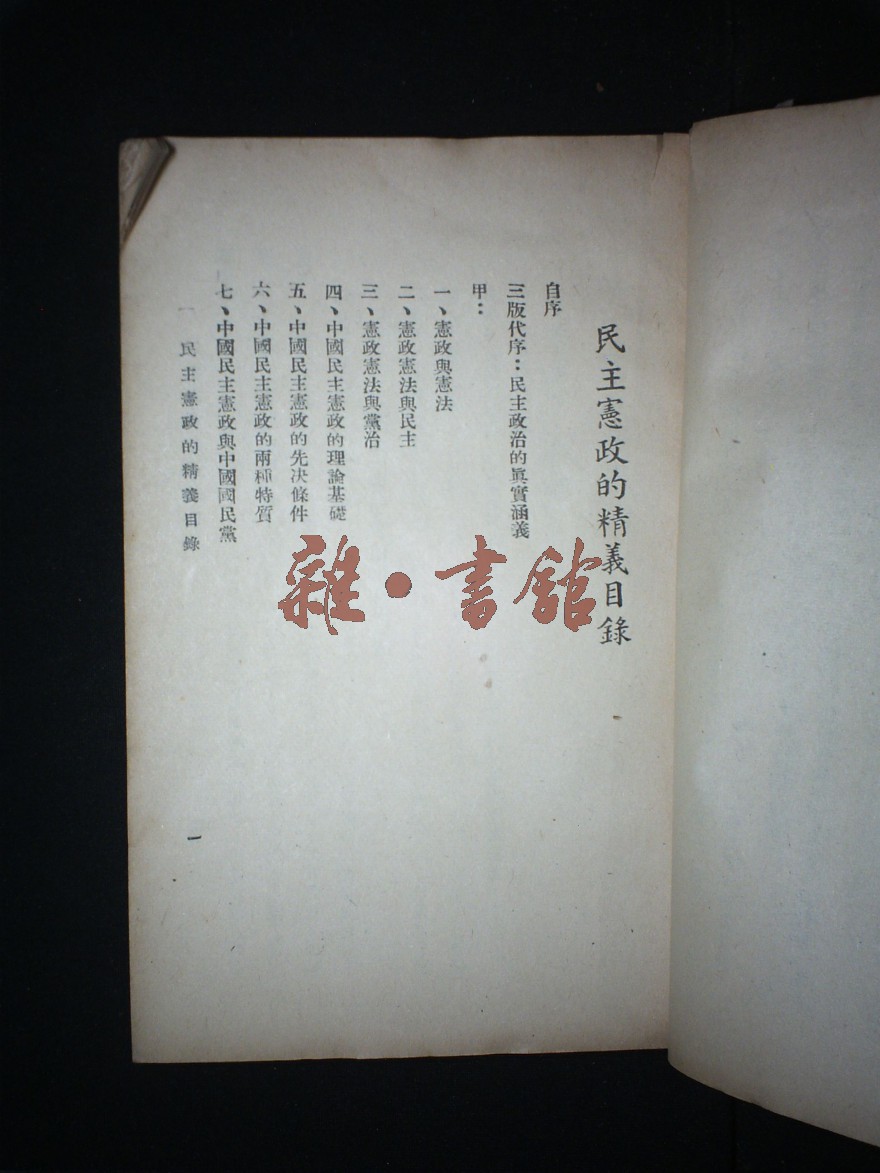 民主憲政的精義目錄
自序
三版代序：民主政治的眞實涵義
甲：
一、憲政與憲法
二、憲政憲法與民主
三、憲政憲法與黨治
四、中國民主憲政的理論基礎
五、中國民主憲政的先決條件
六、中國民主憲政的兩種特質
七、中國民主憲政與中國國民黨
民主憲政的精義目錄
一
雜·書館